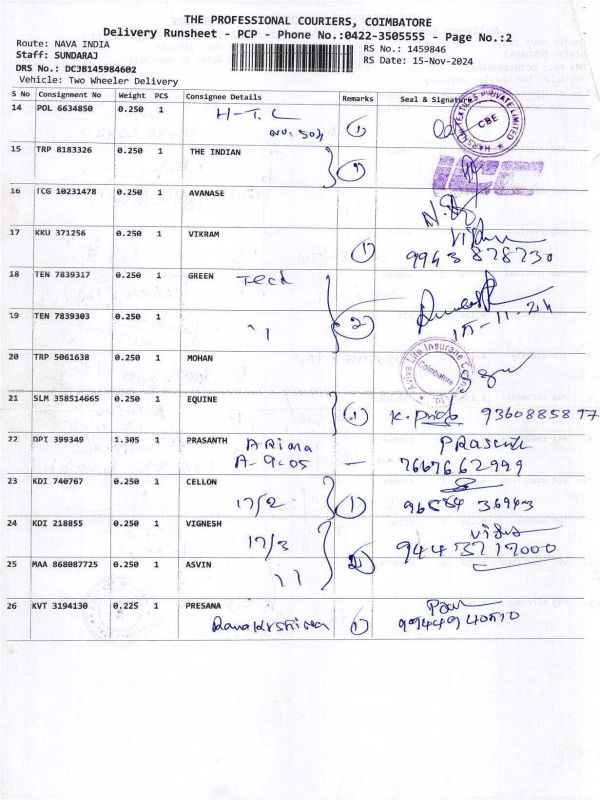 THE PROFESSIONAL COURIERS, COIMBATORE
Delivery Runsheet - PCP - Phone No.:0422-3505555 - Page No.:2
Route: NAVA INDIA
Staff: SUNDARAJ
DRS No.: DCJB145984602
Vehicle: Two Wheeler Delivery
RS No.: 1459846
RS Date: 15-Nov-2024
S No Consignment No Weight PCS Consignee Details Remarks Seal & Signature
14 POL 6634850 0.250 1 H-T.C 1
CBE
15 TRP 8183326 0.250 1 THE INDIAN
ICE
16 TCG 10231478 0.250 1 AVANASE
17 KKU 371256 0.250 1 VIKRAM 1
9943 878730
18 TEN 7839317 0.250 1 GREEN Tech
19 TEN 7839303 0.250 1 " 2
15-11-24
20 TRP 5061638 0.250 1 MOHAN
Aviva Life Insurance
Coimbatore
21 SLM 358514665 0.250 1 EQUINE 1 93608858 77
22 DPI 399349 1.305 1 PRASANTH Ariana
A-9-05 — 7667662999
23 KDI 740767 0.250 1 CELLON
17/2 1 96884 36943
24 KDI 218855 0.250 1 VIGNESH
17/3
25 MAA 868087725 0.250 1 ASVIN 2
"
26 KVT 3194130 0.225 1 PRESANA
Ramakrishna 1